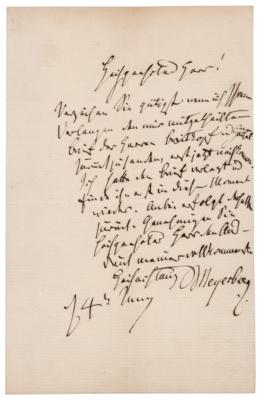 Hochgeehrter Herr!
Verzeihen Sie gütigst wenn ich Ihrem
Verlangen den mir mitgetheilten
Brief der Herren Breitkopf u Härtel
zurückzusenden, erst jetzt nachkomme.
Ich hatte den Brief verlegt und
finde ihn erst in diesem Moment
wieder. Anbei erfolgt derselbe
zurück. Genehmigen Sie
hochgeehrter Herr den Aus-
druck meiner vollkommensten
Hochachtung Meyerbeer
d 4t Juny